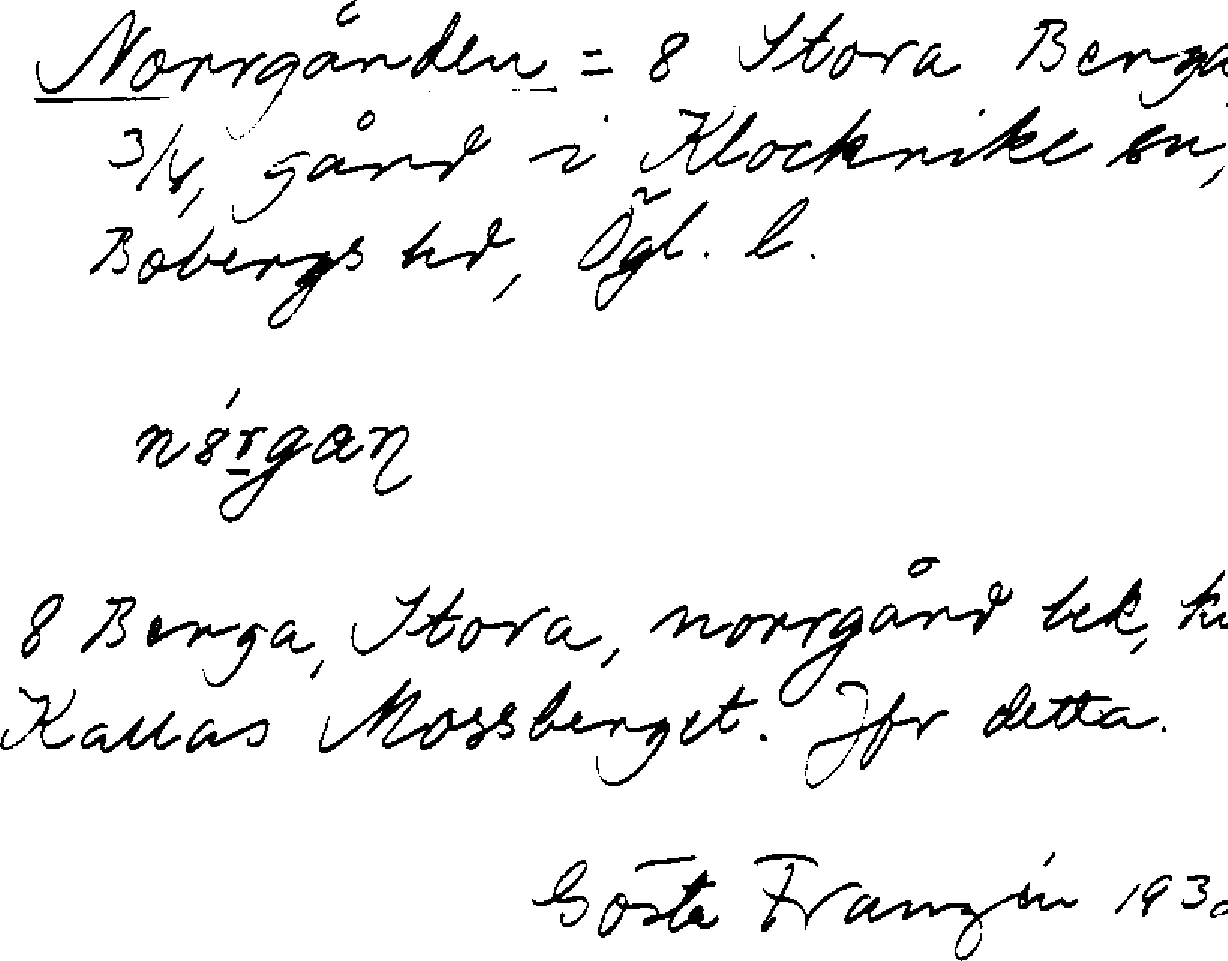 Norrgården = 8 Stora Berga
3/4, gård i Klockrike sn,
Bobergs hd, Ögl. l.
8 Berga, Stora, norrgård
Kallas Mossberget. Jfr detta.
Gösta Franzén